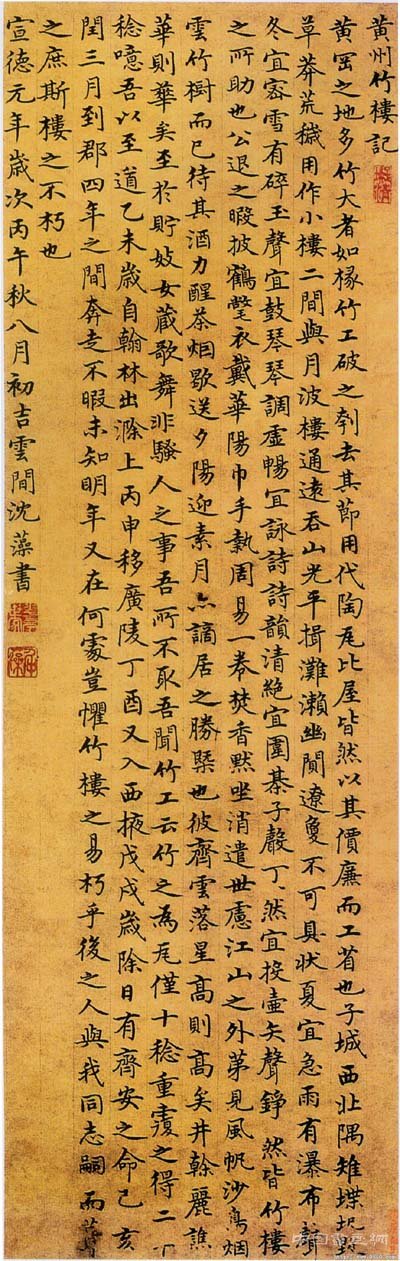 黄州竹樓記
黄罡之地多竹大者如椽竹工破之刳去其節用代陶瓦比屋皆然以其價廉而工省也子城西北隅雉堞圮毀
草莽荒穢用作小樓二間與月波樓通遠吞山光平挹灘瀨幽闃遼夐不可具狀夏宜急雨有瀑布聲
冬宜密雪有碎玉聲宜鼓琴琴調虛暢宜詠詩詩韻清絶宜圍棊子聲丁〻然宜投壺矢聲錚〻然皆竹樓
之所助也公退之暇披鶴氅衣戴華陽巾手執周易一卷焚香默坐消遣世慮江山之外第見風帆沙鳥烟
雲竹樹而已待其酒力醒茶烟歇送夕陽迎素月亦謫居之勝槩也彼齊雲落星高則高矣井幹麗譙
華則華矣至於貯妓女蔵歌舞非騷人之事吾所不取吾聞竹工云竹之為瓦僅十稔重覆之得二十
稔噫吾以至道乙未歲自翰林出滁上丙申移廣陵丁酉又入西掖戊戌歲除日有齊安之命己亥
閏三月到郡四年之間奔走不暇未知明年又在何處豈懼竹樓之易朽乎後之人與我同志嗣而葺
之庶斯樓之不朽也
宣德元年歲次丙午秋八月初吉雲間沈藻書